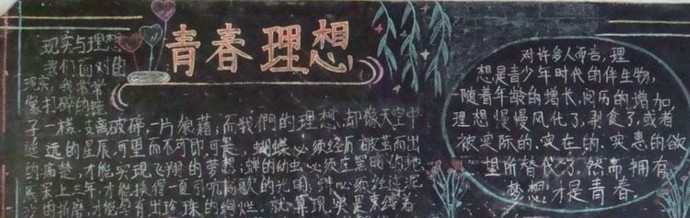 青春理想
现实与理想
我们面对自
现实,我常常
像打碎的镜
子一样,支离破碎,一片狼藉,而我們的理想,却像天空中
遥远的星辰,可望而不可即,可是,蝴蝶必须经历破茧而出
的痛楚,才能实现飞翔的梦想,蝉的幼虫必须在黑暗的地
底呆上三年,才能换得一夏引吭高歌的光阴,蚌必须经过泥
沙的折磨,才能孕育出珍珠的绚烂。就算现实是束缚着
对许多人而言,理
想是青少年时代的伴生物,
随着年龄的增长,阅历的增加,
理想慢慢风化了,剥食了,或者
被实际的,实在的,实惠的欲
望所替代了,然而拥有
梦想才是青春